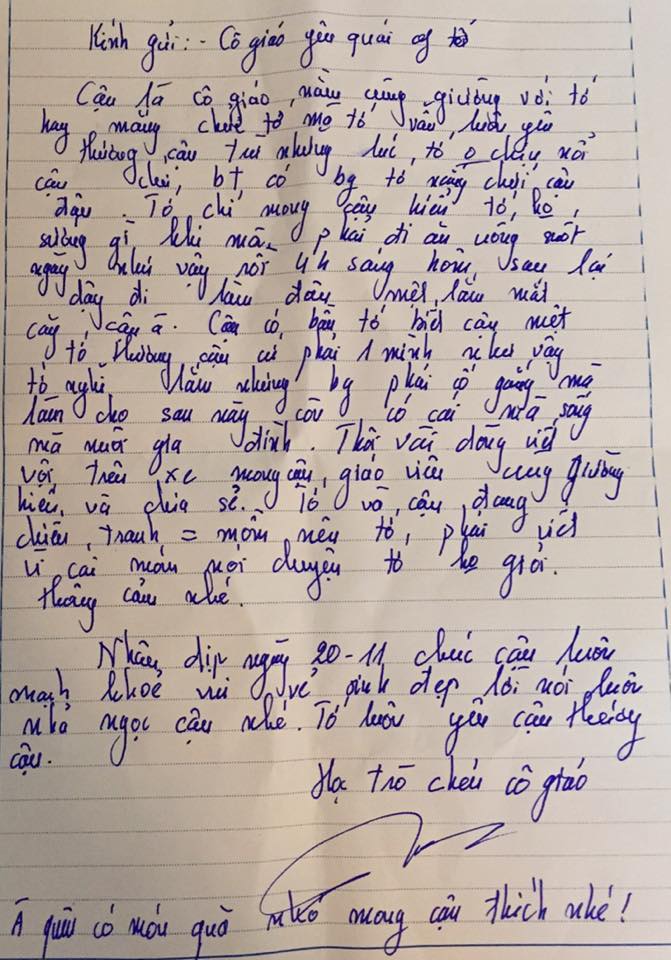 Kính gửi: - Cô giáo yêu quái of tớ
Cậu là cô giáo, nằm cùng giường với tớ
hay mắng chửi tớ mà tớ vẫn luôn yêu
thương cậu trừ những lúc, tớ o chịu nổi
cậu chứ, bt có bg tớ mắng chửi cậu
đâu. Tớ chỉ mong cậu hiểu tớ, ko
sướng gì khi mà phải đi ăn uống suốt
ngày như vậy rồi 4h sáng hôm sau lại
dậy đi làm đâu mệt lắm mất
cậu ạ. Cậu có bầu tớ biết cậu mệt
tớ thương cậu cứ phải 1 mình như vậy
tớ nghĩ lắm nhưng bg phải cố gắng mà
làm cho sau này còn có cái mà sống
mà nuôi gia đình. Thôi vài dòng viết
vội trên xe mong cậu, giáo viên cùng giường
hiểu và chia sẻ. Tớ và cậu đang
chiến tranh = mồm nên tớ phải viết
vì cái món nói chuyện tớ ko giỏi.
thông cảm nhé.
Nhân dịp ngày 20-11 chúc cậu luôn
mạnh khoẻ vui vẻ xinh đẹp lời nói luôn
nhả ngọc cậu nhé. Tớ luôn yêu cậu thương
cậu.
Học trò chén cô giáo
À quên có món quà nhỏ mong cậu thích nhé!